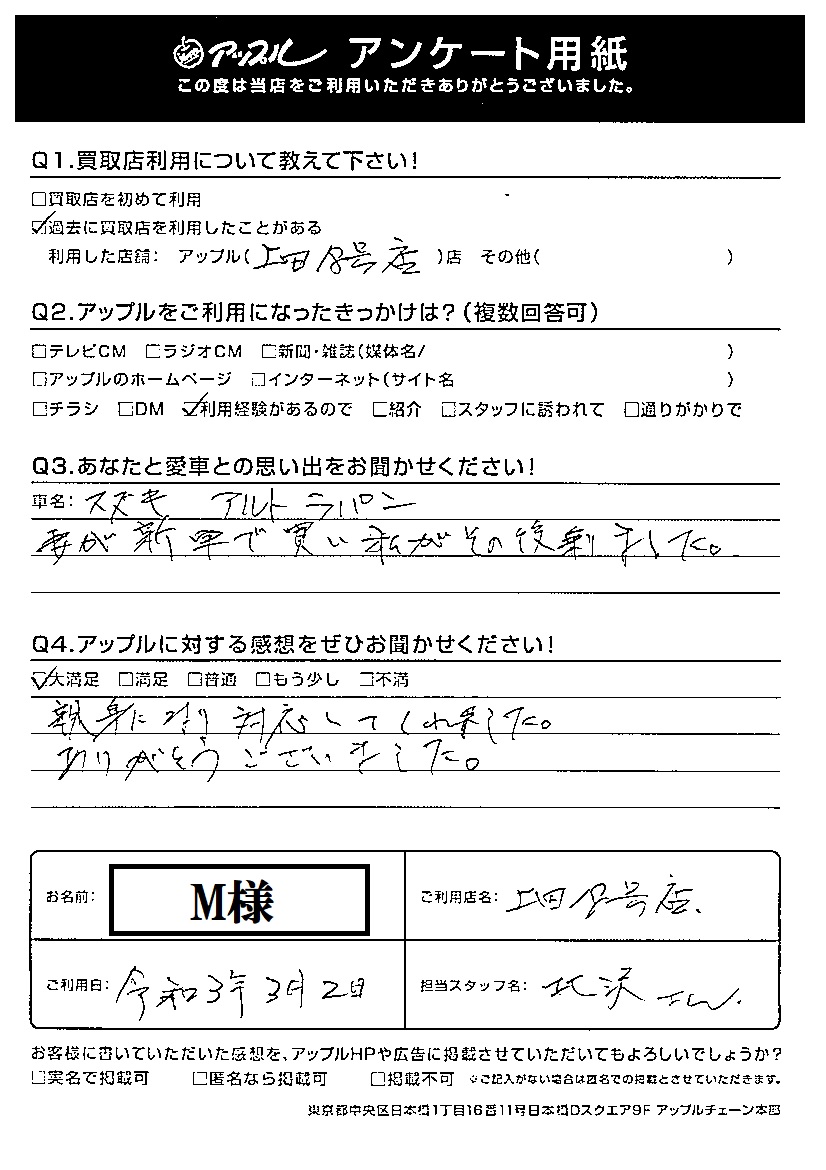 アップル アンケート用紙
この度は当店をご利用いただきありがとうございました。
Q1.買取店利用について教えて下さい!
□買取店を初めて利用
☑過去に買取店を利用したことがある
利用した店舗: アップル(上田18号店)店 その他( )
Q2.アップルをご利用になったきっかけは?(複数回答可)
□テレビCM □ラジオCM □新聞・雑誌(媒体名/ )
□アップルのホームページ □インターネット(サイト名 )
□チラシ □DM ☑利用経験があるので □紹介 □スタッフに誘われて □通りがかりで
Q3.あなたと愛車との思い出をお聞かせください!
車名: スズキ アルトラパン
妻が新車で買い私がその後乗りました。
Q4.アップルに対する感想をぜひお聞かせください!
☑大満足 □満足 □普通 □もう少し □不満
親身になり対応してくれました。
ありがとうございました。
お名前: M様
ご利用店名: 上田18号店.
ご利用日: 令和3年3月2日
担当スタッフ名: 北沢さん.
お客様に書いていただいた感想を、アップルHPや広告に掲載させていただいてもよろしいでしょうか?
□実名で掲載可 □匿名なら掲載可 □掲載不可 ※ご記入がない場合は匿名での掲載とさせていただきます。
東京都中央区日本橋1丁目16番11号日本橋Dスクエア9F アップルチェーン本部